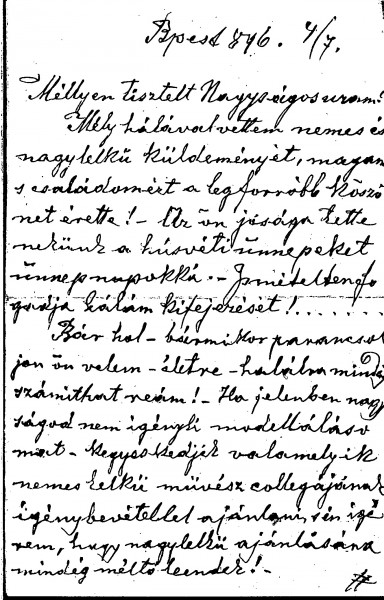 Bpest 896. 4/7.
Méllyen tisztelt Nagyságos uram!
Mély hálával vettem nemes és
nagylelkü küldeményét, magam
s családomért a legforróbb köszö
net érette! - Az ön jósága tette
nekünk a húsvéti ünnepeket
ünnepnapokká. - Ismételten fo
gadja hálám kifejezését! . . . . . .
Bár hol - bármikor parancsol
jon ön velem - életre - halálra mindég
számithat reám! - Ha jelenben nagy
ságod nem igényli modelláláso
mat - kegyeskedjék valamelyik
nemes lelkü müvész collegájának
igénybevétellel ajánlani, én igé
rem, hogy nagylelkü ajánlására
mindég méltó leendek! -